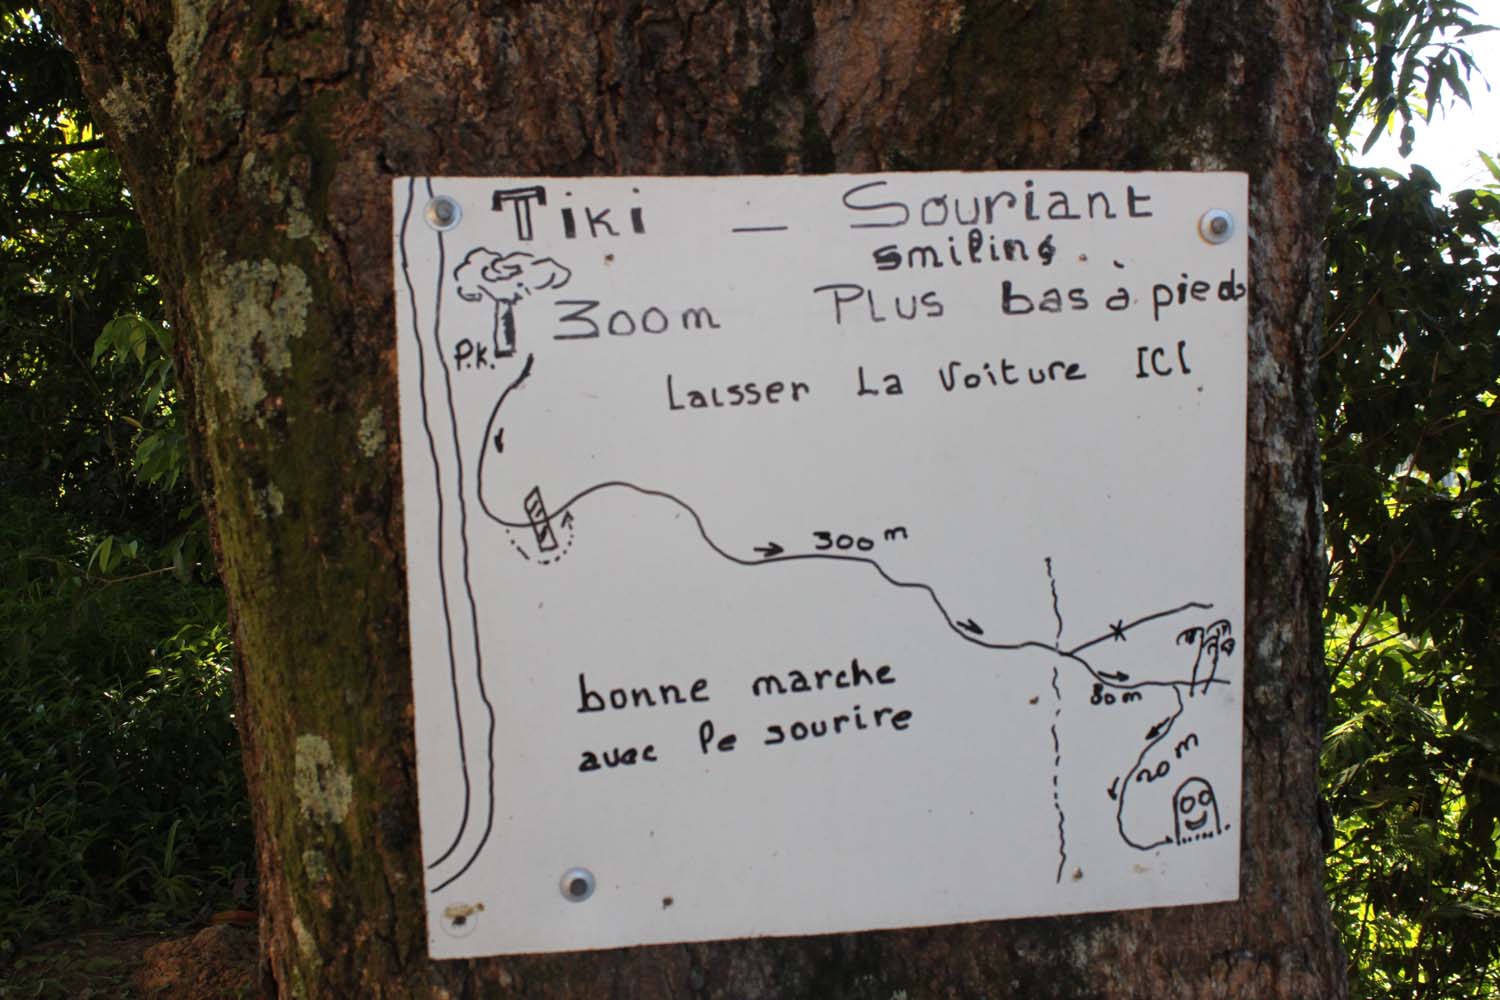 Tiki — Souriant
smiling.
300m Plus bas à pieds
P.K.
Laisser La Voiture ICI
300 m
80m
20 m
bonne marche
avec le sourire